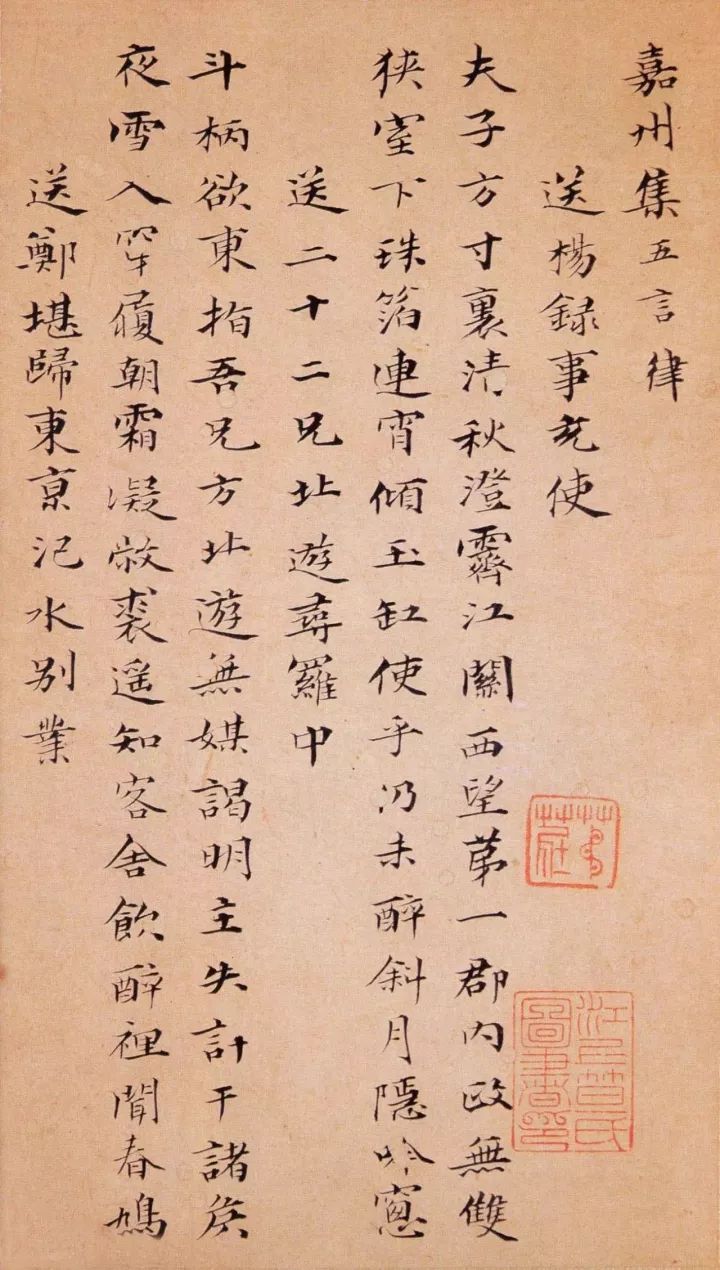 嘉州集五言律
送楊録事充使
夫子方寸裏清秋澄霽江關西望第一郡内政無雙
狹室下珠箔連宵傾玉缸使乎仍未醉斜月隱吟窓
送二十二兄北遊尋羅中
斗柄欲東指吾兄方北遊無媒謁明主失計干諸侯
夜雪入穿履朝霜凝敝裘遥知客舍飲醉裡聞春鳩
送鄭堪歸東京汜水別業